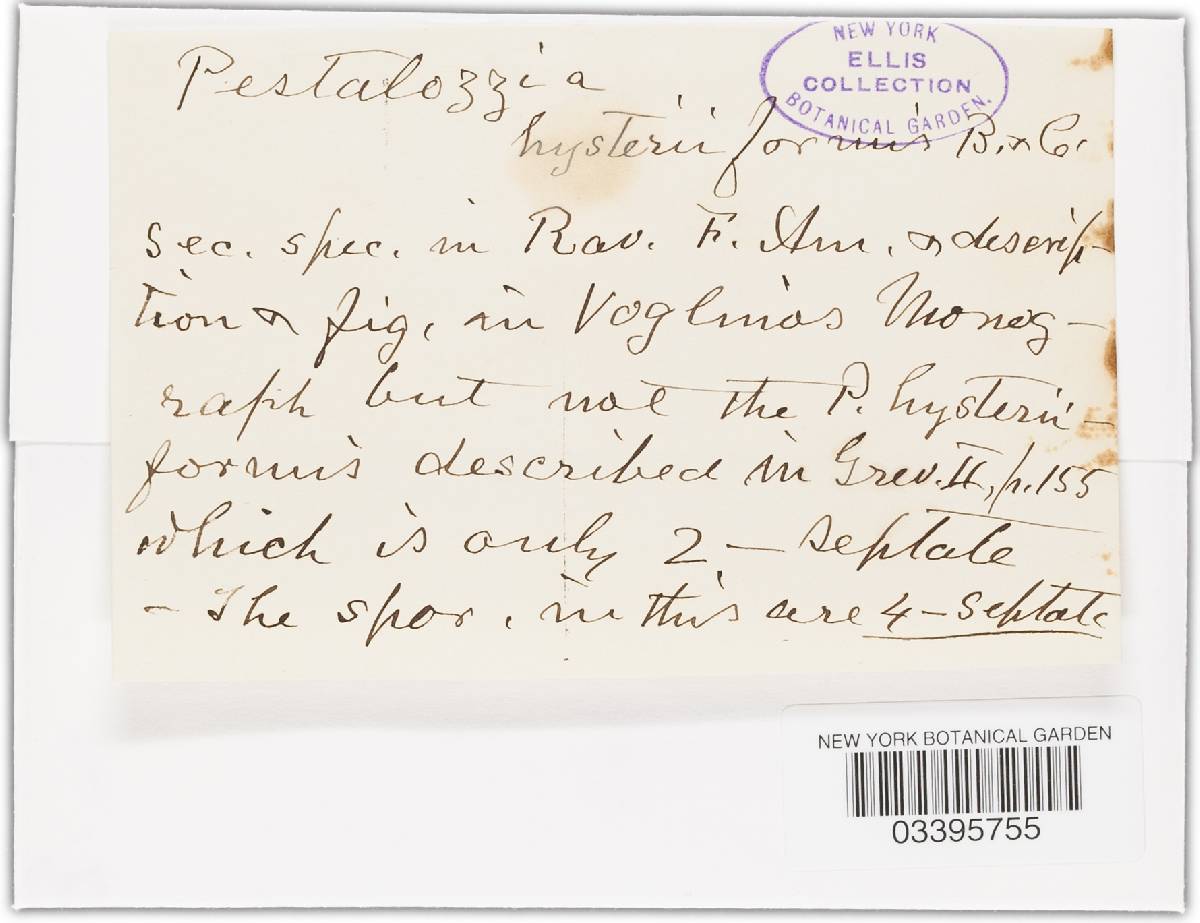 NEW YORK
ELLIS
COLLECTION
BOTANICAL GARDEN.
Pestalozzia
hysteriiformis B. & C.
sec. spec. in Rav. F. Am. & descrip-
tion & fig. in Voglinos Monog-
raph but not the P. hysterii-
formis described in Grev. II, p. 155
which is only 2-septate
- The spor. in this are 4-septate
NEW YORK BOTANICAL GARDEN
03395755